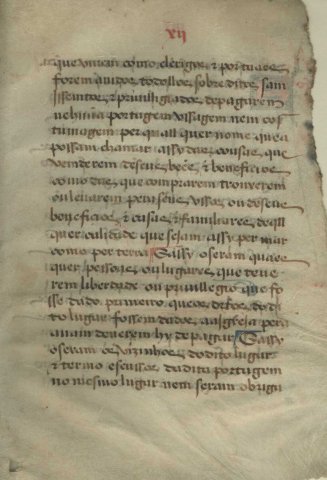 xij
que viuam como clerigos & por taaes
forem auidos todollos sobreditos sam
issentos & priuilligiados de pagarem
nehũua portugem vssagem nem cos
tumagem per qualquer nome que a
possam chamar assy das cousas que
venderem de seus beẽs & beneficios
como das que comprarem trouxerem
ou leuarem pera seus vssos ou de seus
beneficios & casas & familiares de qll
quer calidade que sejam assy per mar
como per terra Assy o seram quaaes
quer pessoas ou lugares que teue
rem liberdade ou priuillegio que fo
sse dado primeiro que os dictos do di
to lugar fossem dados aa Igreja pera
auam deuerem hy de pagar Assy
o seram os vizinhos do dito lugar
& termo escussos da dita portugem
no mesmo lugar nem seram obriga